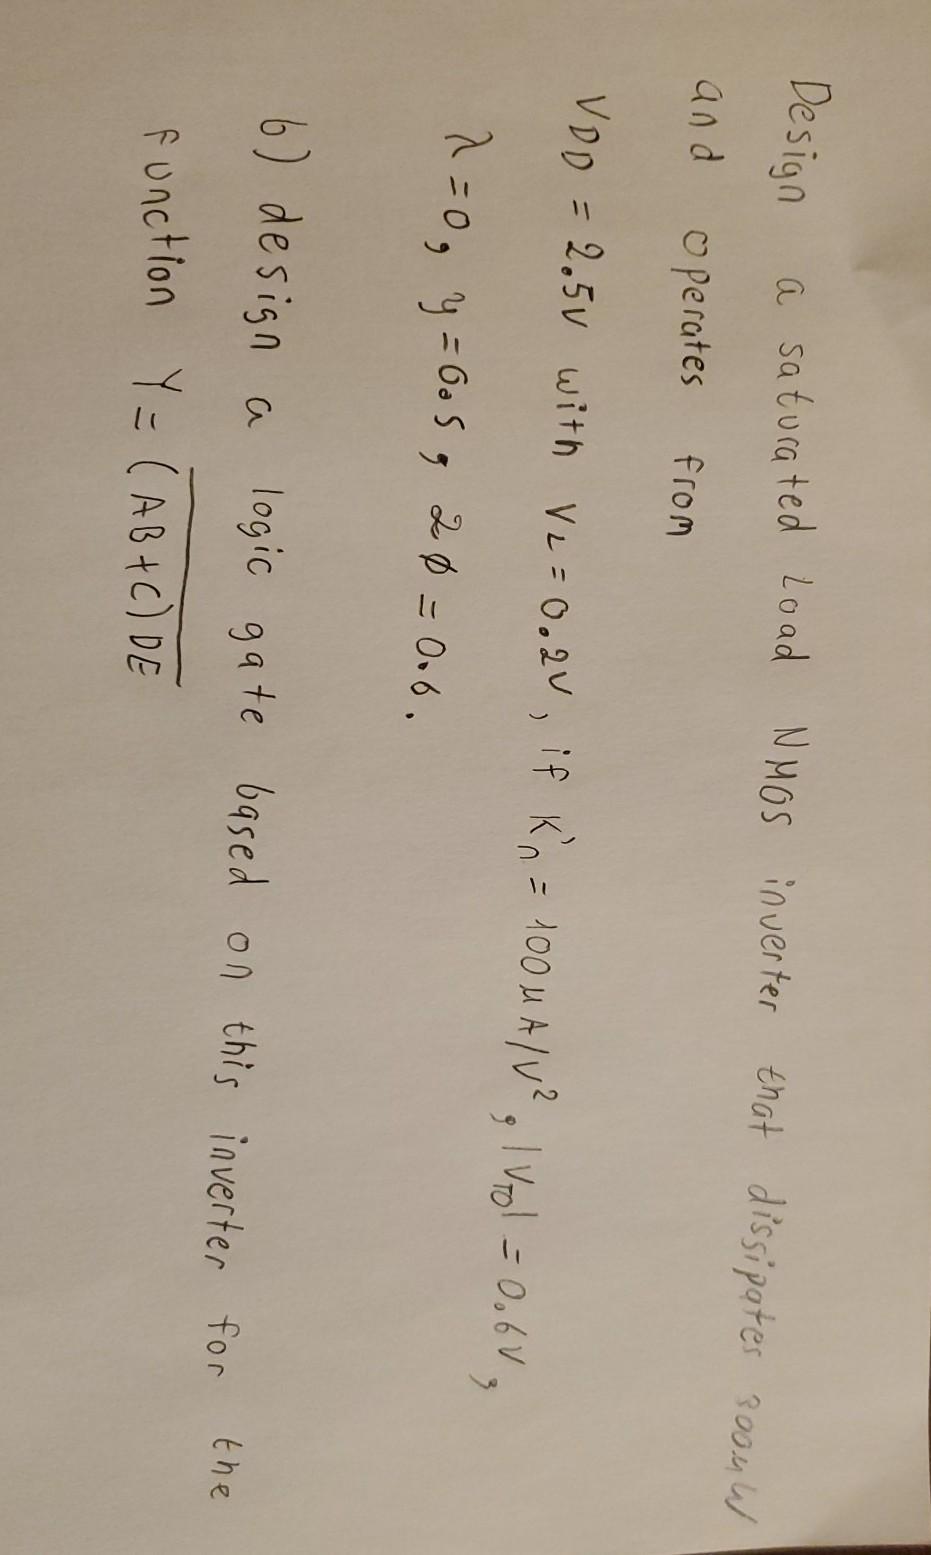 Design a saturated Load NMOS inverter that dissipates
and operates from
VDD = 2.5V with VL = 0.2V, if K'n = 100μA/V², |VTO| = 0.6V,
λ = 0, γ = 0.5, 2φ = 0.6.
b) design a logic gate based on this inverter for the
function Y = \overline{(AB+C)DE}